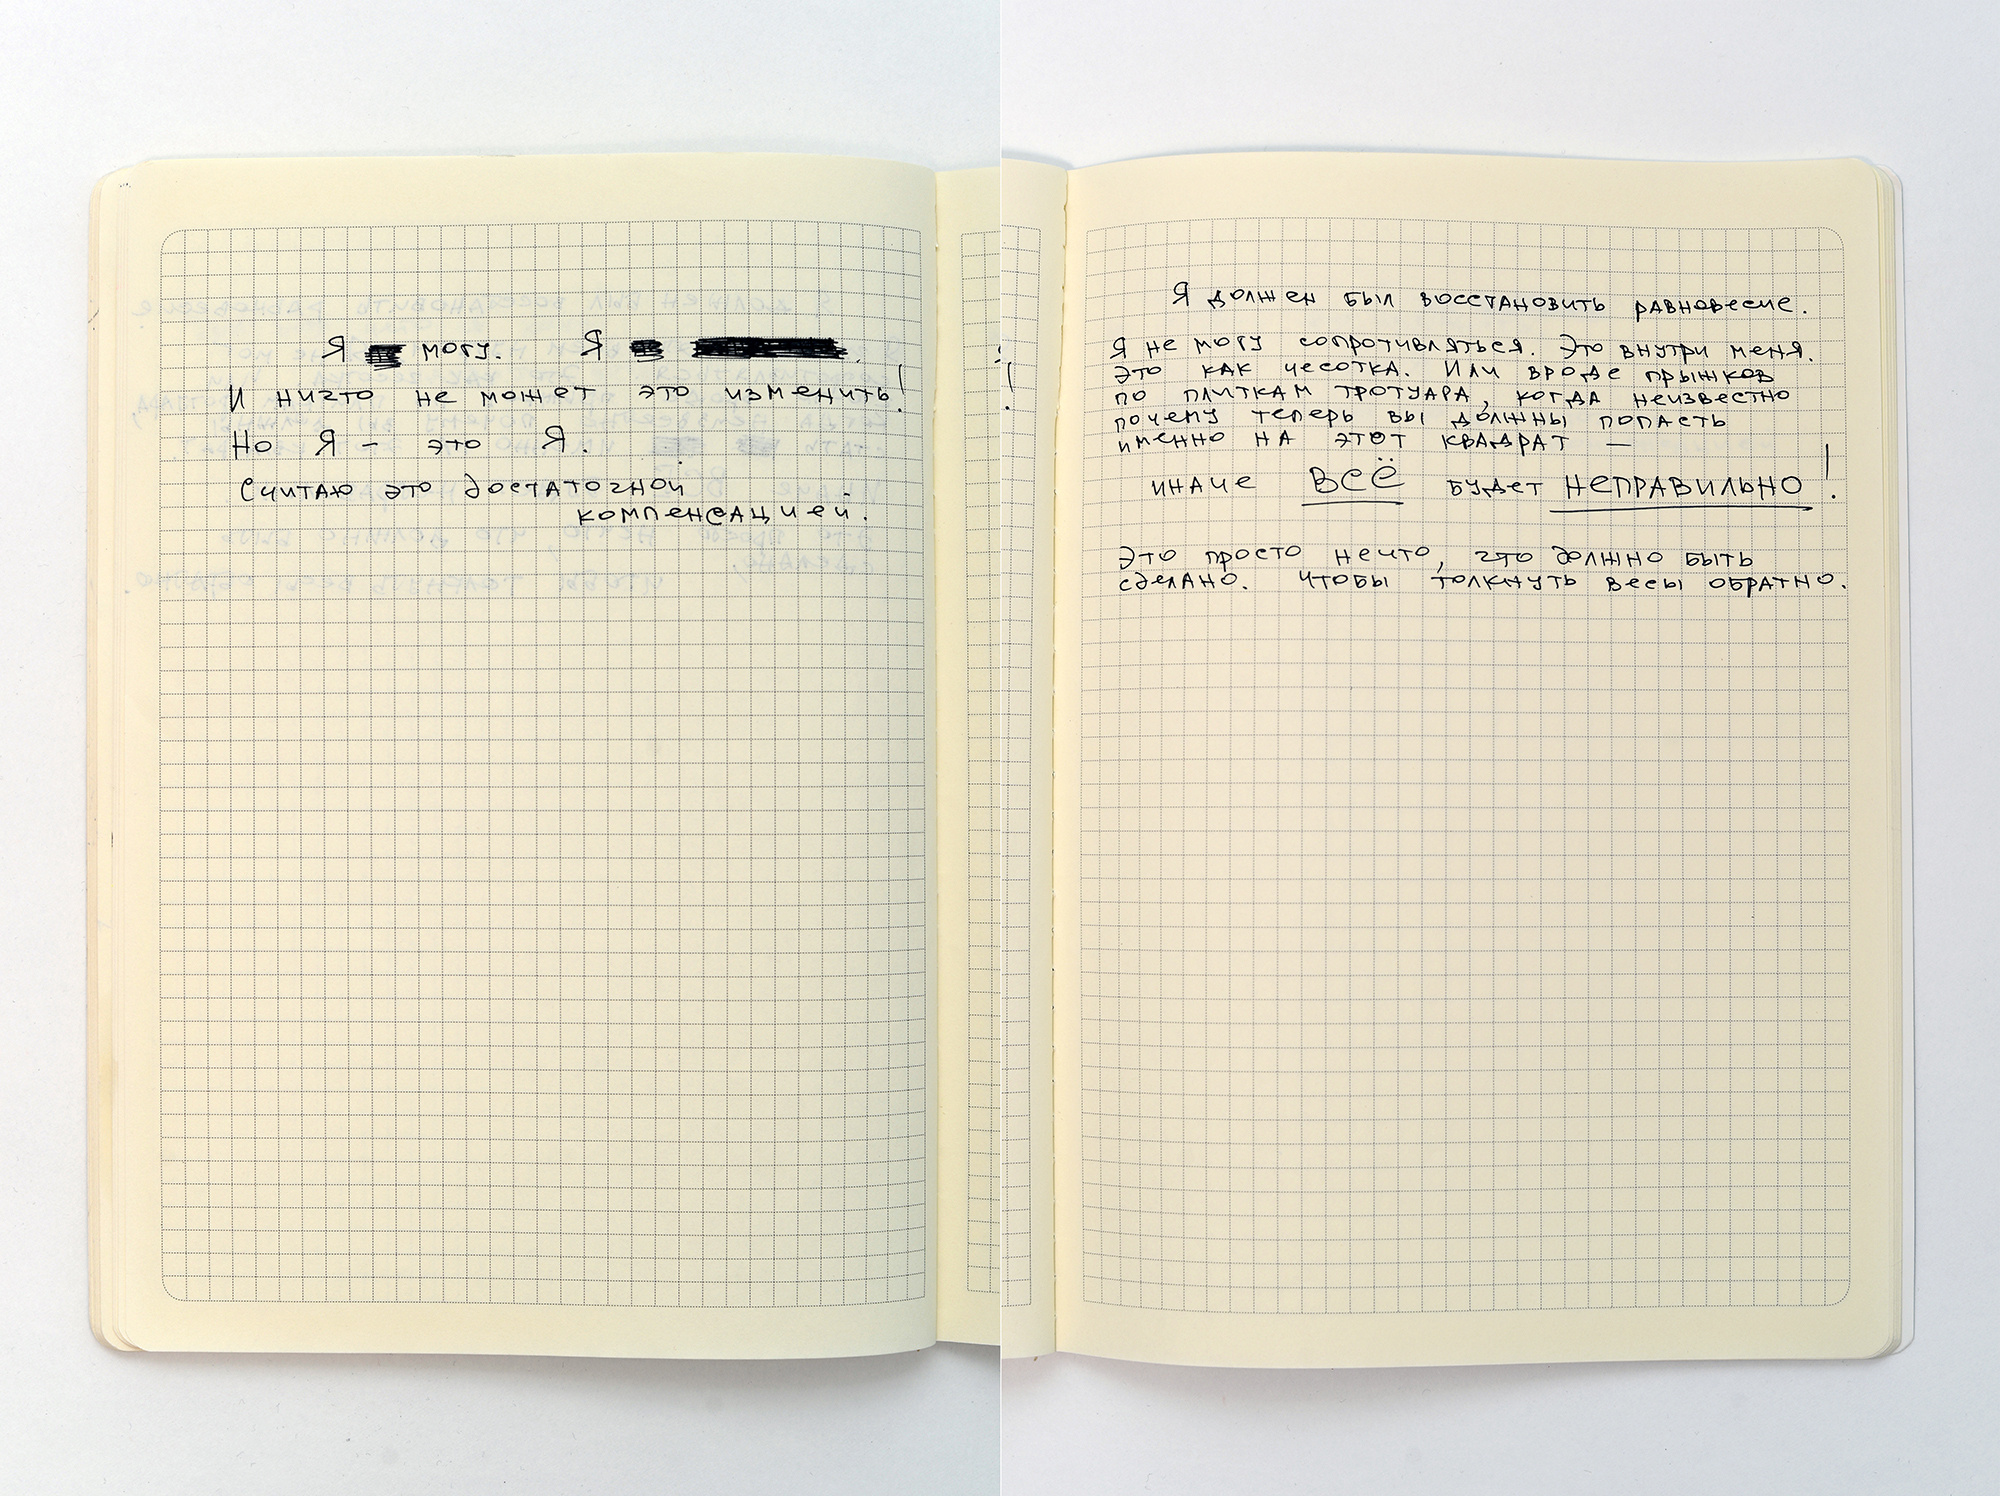 Я могу. Я
И ничто не может это изменить!
Но Я – это Я.
Считаю это достаточной
компенсацией.
Я должен был восстановить равновесие.
Я не могу сопротивляться. Это внутри меня.
Это как чесотка. Или вроде прыжков
по плиткам тротуара, когда неизвестно
почему теперь вы должны попасть
именно на этот квадрат —
иначе ВСЁ будет НЕПРАВИЛЬНО!
Это просто нечто, что должно быть
сделано. Чтобы толкнуть весы обратно.